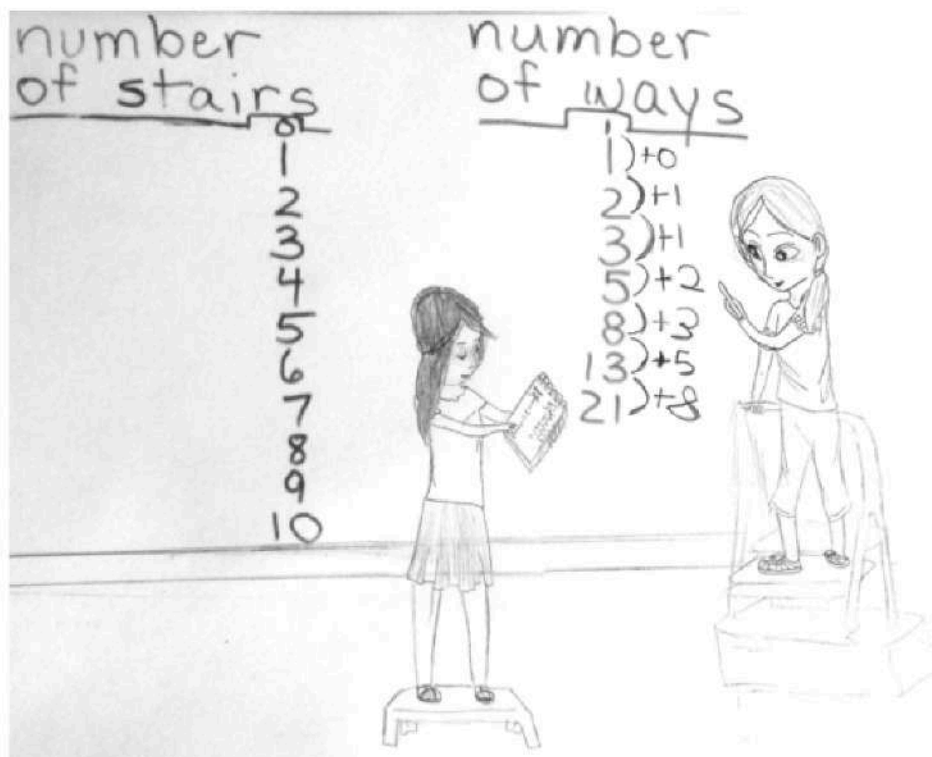 number
of stairs
0
1
2
3
4
5
6
7
8
9
10
number
of ways
1
1)+0
2)+1
3)+1
5)+2
8)+3
13)+5
21)+8